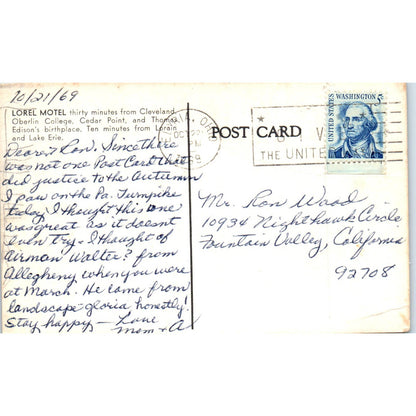 10/21/69
LOREL MOTEL thirty minutes from Cleveland,
Oberlin College, Cedar Point, and Thomas
Edison's birthplace. Ten minutes from Lorain
and Lake Erie.
Dear Ron. Since there
was not one Post Card that
did justice to the autumn
I saw on the Pa. Turnpike
today I thought this one
was great as it doesn't
even try. I thought of
Airman Walter? from
Allegheny when you were
at March. He came from
landscape gloria honestly!
Stay happy — Love
Mom + A
OHIO
OCT 22
PM
POST CARD
THE UNITED
UNITED STATES
WASHINGTON 5c
Mr. Ron Wood
10934 Nighthawk Circle
Fountain Valley, California
92708